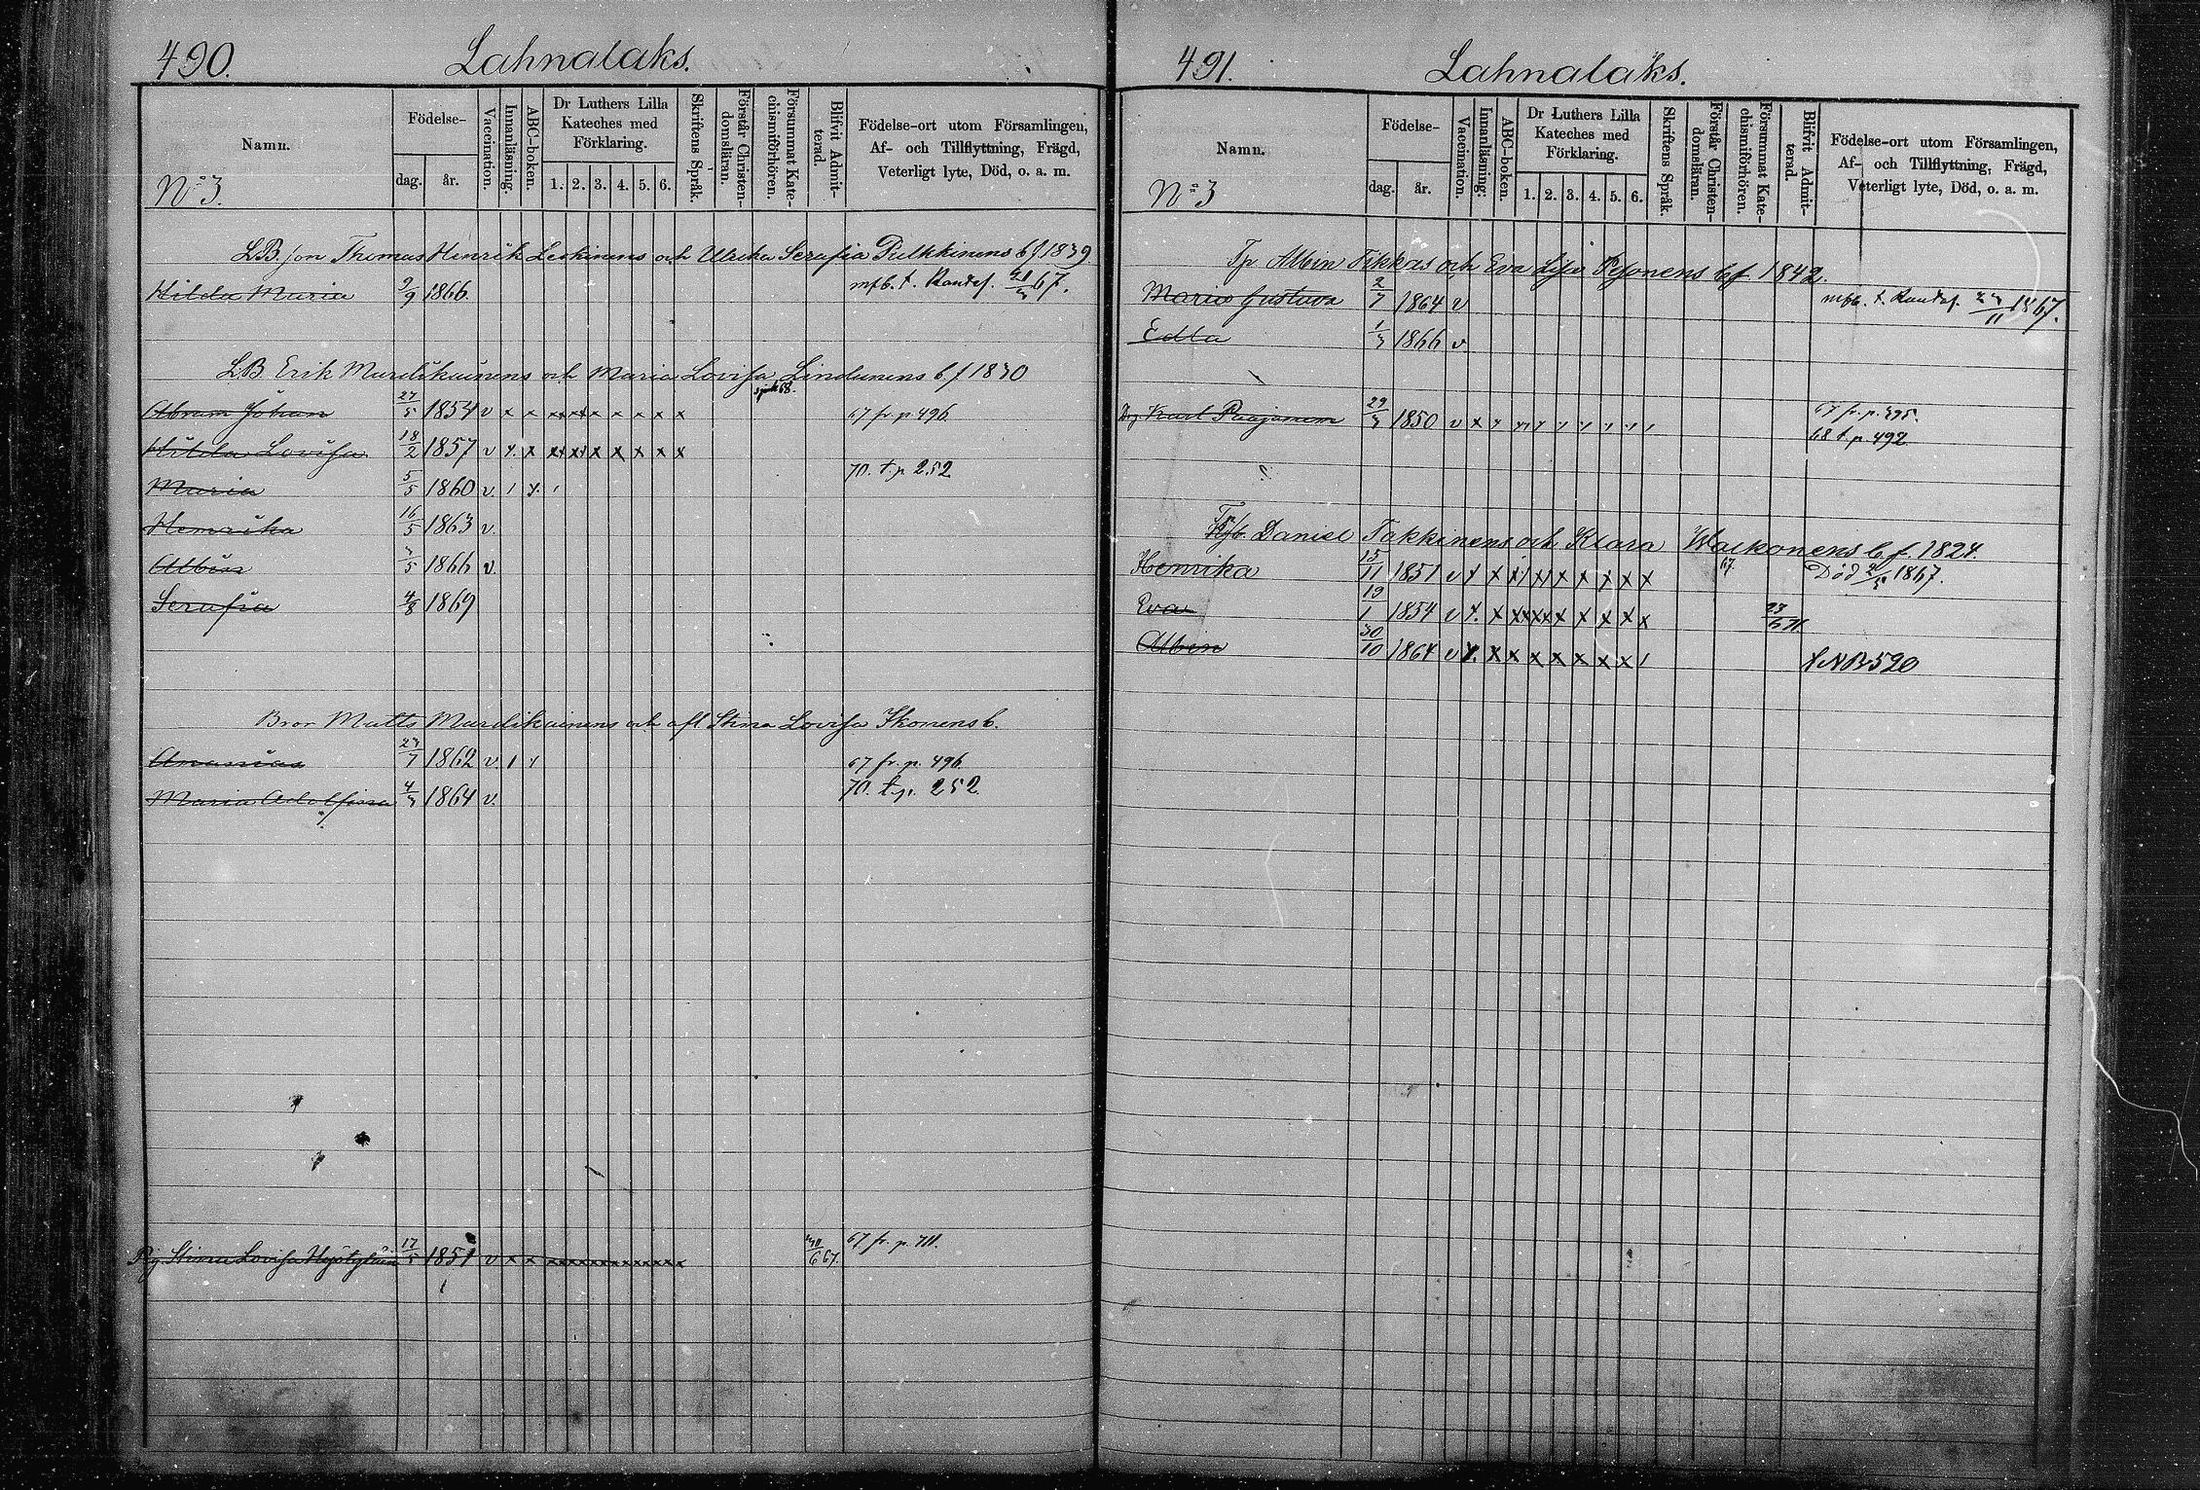 490. Lahnalaks.
Namn. Födelse- dag. år. Vaccination. Innanläsning. ABC-boken. Dr Luthers Lilla Kateches med Förklaring. 1. 2. 3. 4. 5. 6. Skriftens Språk. Förstår Christendomsläran. Försummat Katechismiförhören. Blifvit Admitterad. Födelse-ort utom Församlingen, Af- och Tillflyttning, Frägd, Veterligt lyte, Död, o. a. m.
No 3.
LB. son Thomas Henrik Leskinens och Ulrika Serafia Pulkkinens b f 1839
Hilda Maria 9/9 1866 mfb. t. Rantas. 67.
LB. Erik Murdikainens och Maria Lovisa Lindunens b f 1830
Abram Johan 27/5 1854 v x x x x x x x x x 67 fr. p 496
Hilda Lovisa 18/2 1857 v x x x x x x x x x
Maria 5/5 1860 v. 70. t. p 252
Henrika 16/5 1863 v.
Albin 3/5 1866 v.
Serafia 4/8 1869
Bror Matts Murdikainens och afl Stina Lovisa Ikonens b.
Ananias 23/7 1862 v. 67 fr. p. 496
Maria Adolfina 4/3 1864 v. 70. t. p. 252
Stina Lovisa 17/5 1851 v x x x x x x x x x x x x 67. 67 fr. p. 711.
491. Lahnalaks.
Namn. Födelse- dag. år. Vaccination. Innanläsning. ABC-boken. Dr Luthers Lilla Kateches med Förklaring. 1. 2. 3. 4. 5. 6. Skriftens Språk. Förstår Christendomsläran. Försummat Katechismiförhören. Blifvit Admitterad. Födelse-ort utom Församlingen, Af- och Tillflyttning, Frägd, Veterligt lyte, Död, o. a. m.
No 3
Tp Albin Tikkas och Eva Lisa Pesonens b f. 1842.
Maria Gustava 2/7 1864 v mfb. t. Rantas. 11 1867.
Edla 1/3 1866 v
Karl 29/3 1850 v x 67 fr. p. 395.
68 t. p 492
Daniel Takkinens och Klara Walkonens b. f. 1824.
Henrika 15/11 1851 v x x x x x x x x x 67. Död 1867.
Eva 19/1 1854 v x x x x x x x x x 23/6 71
Albin 30/10 1864 v x. x x x x x x x t NB 520